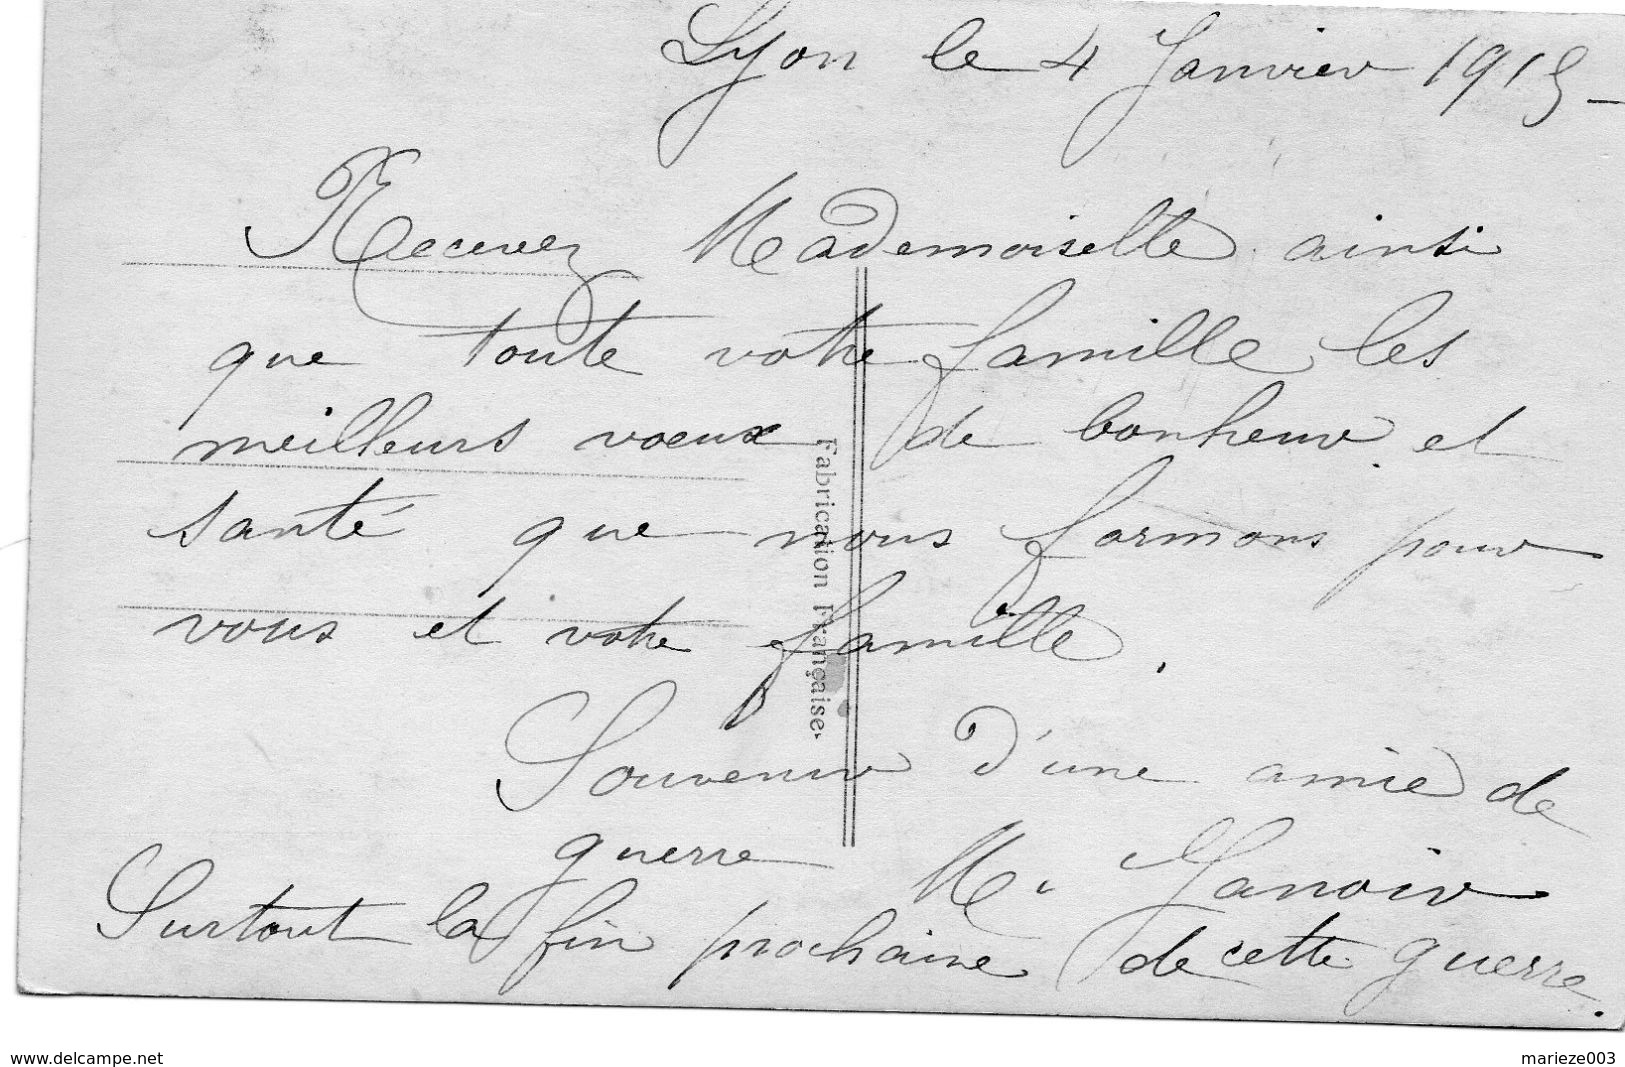 Lyon le 4 Janvier 1915-
Recevez Mademoiselle ainsi
que toute votre famille les
meilleurs voeux de bonheur et
santé que nous formons pour
vous et votre famille.
Souvenir d'une amie de
guerre M. Janoir
Surtout la fin prochaine de cette guerre.
Fabrication Française
www.delcampe.net
marieze003